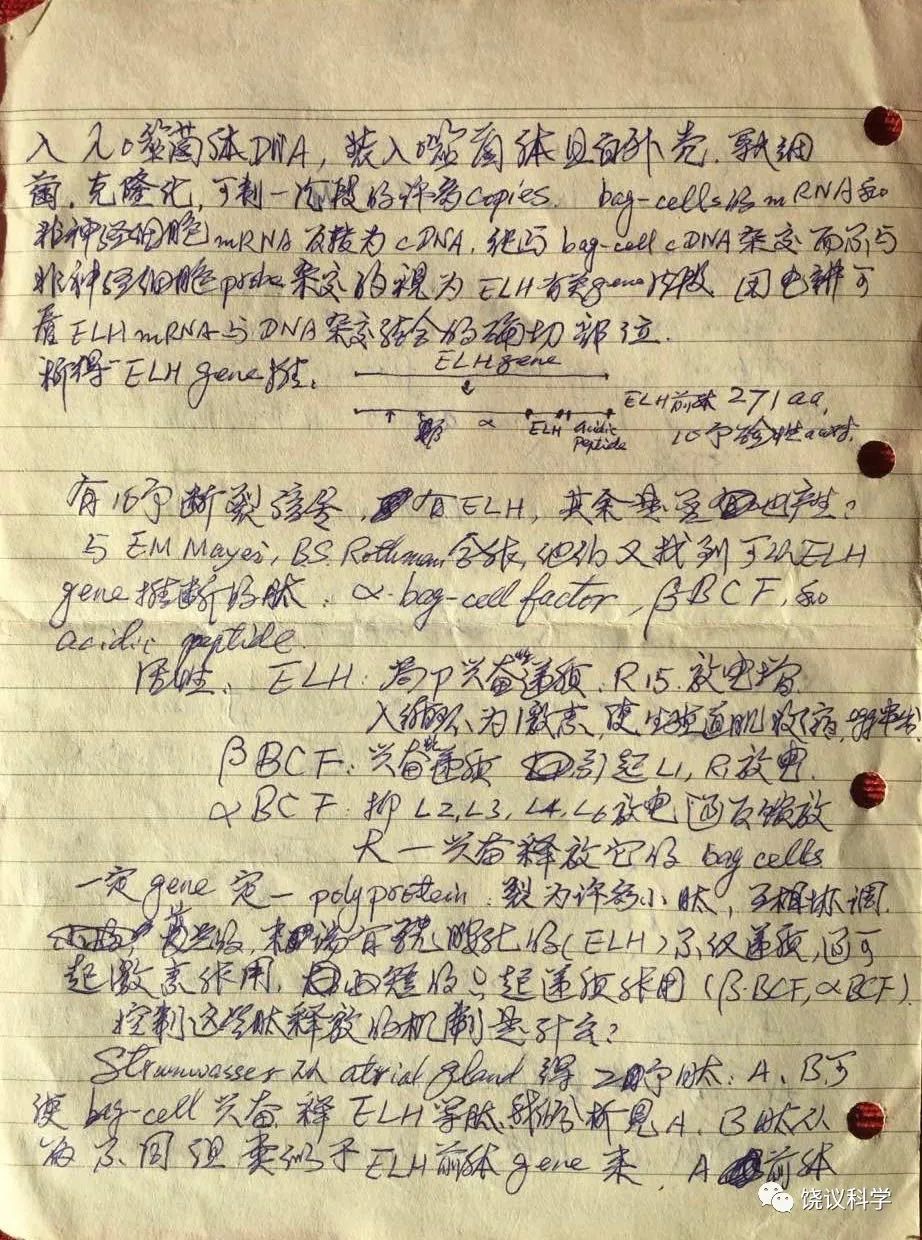 入λ噬菌体DNA, 装入噬菌体且自外壳. 转细
菌. 克隆化, 可制一片段的许多copies. bag-cells的mRNA和
非神经细胞mRNA反转为cDNA. 能与bag-cell cDNA杂交而不与
非神经细胞probe杂交的视为ELH有关gene片段. 因电镜可
看ELH mRNA与DNA杂交结合的确切部位.
析得一ELH gene
ELH gene
ELH前体 271aa,
α ELH acidic peptide
10个
有10个断裂信号, 有ELH, 其余是否也产生?
与E.M Mayeri, B.S. Rothman合作, 他们又找到可从ELH
gene推断的肽: α-bag-cell factor, βBCF, 和
acidic peptide.
活性: ELH: 局P兴奋性递质. R15. 放电增.
入循环为1激素, 使生殖道肌收缩,
βBCF: 兴奋性递质 引起L1, R1放电.
αBCF: 抑L2, L3, L4, L6放电 通反馈放
大一兴奋释放它的bag cells
一定gene 定一polyprotein. 裂为许多小肽, 互相协调.
末端有酰胺化的(ELH)不仅递质, 还可
起激素作用, 而短的只起递质作用(β-BCF, αBCF).
控制这些肽释放的机制是什么?
Strumwasser从atrial gland得2个肽: A、B可
使bag-cell兴奋 释ELH等肽. 我们分析见A、B肽从
为不同但类似于ELH前体gene来. A前体
饶议科学